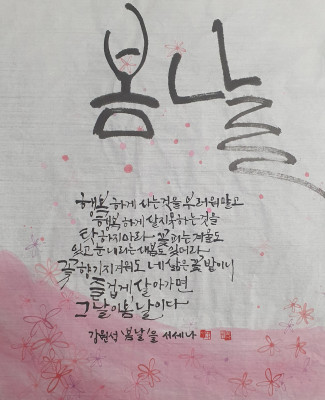 봄날
행복하게 사는것을 부러워말고
행복하게 살지못하는것을
탓하지마라 꽃피는겨울도
있고 눈내리는새봄도 있더라
꽃향기지겨워도 네 삶은 꽃밭이니
즐겁게 살아가면
그날이봄날이다
강원석 '봄날'을 서세나